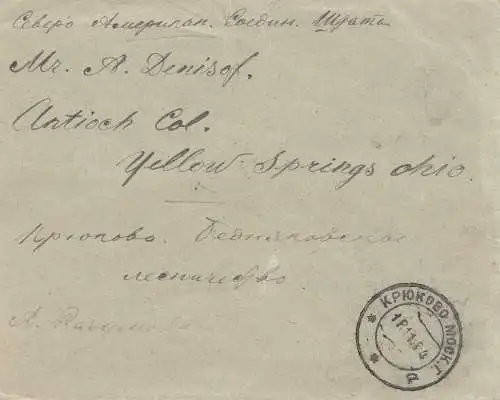 Северо Американ. Соедин. Штаты
Mr. A. Denisof.
Antioch Col.
Yellow Springs Ohio.
Крюково.
лесничество
А.
КРЮКОВО МОСК. Г.
а